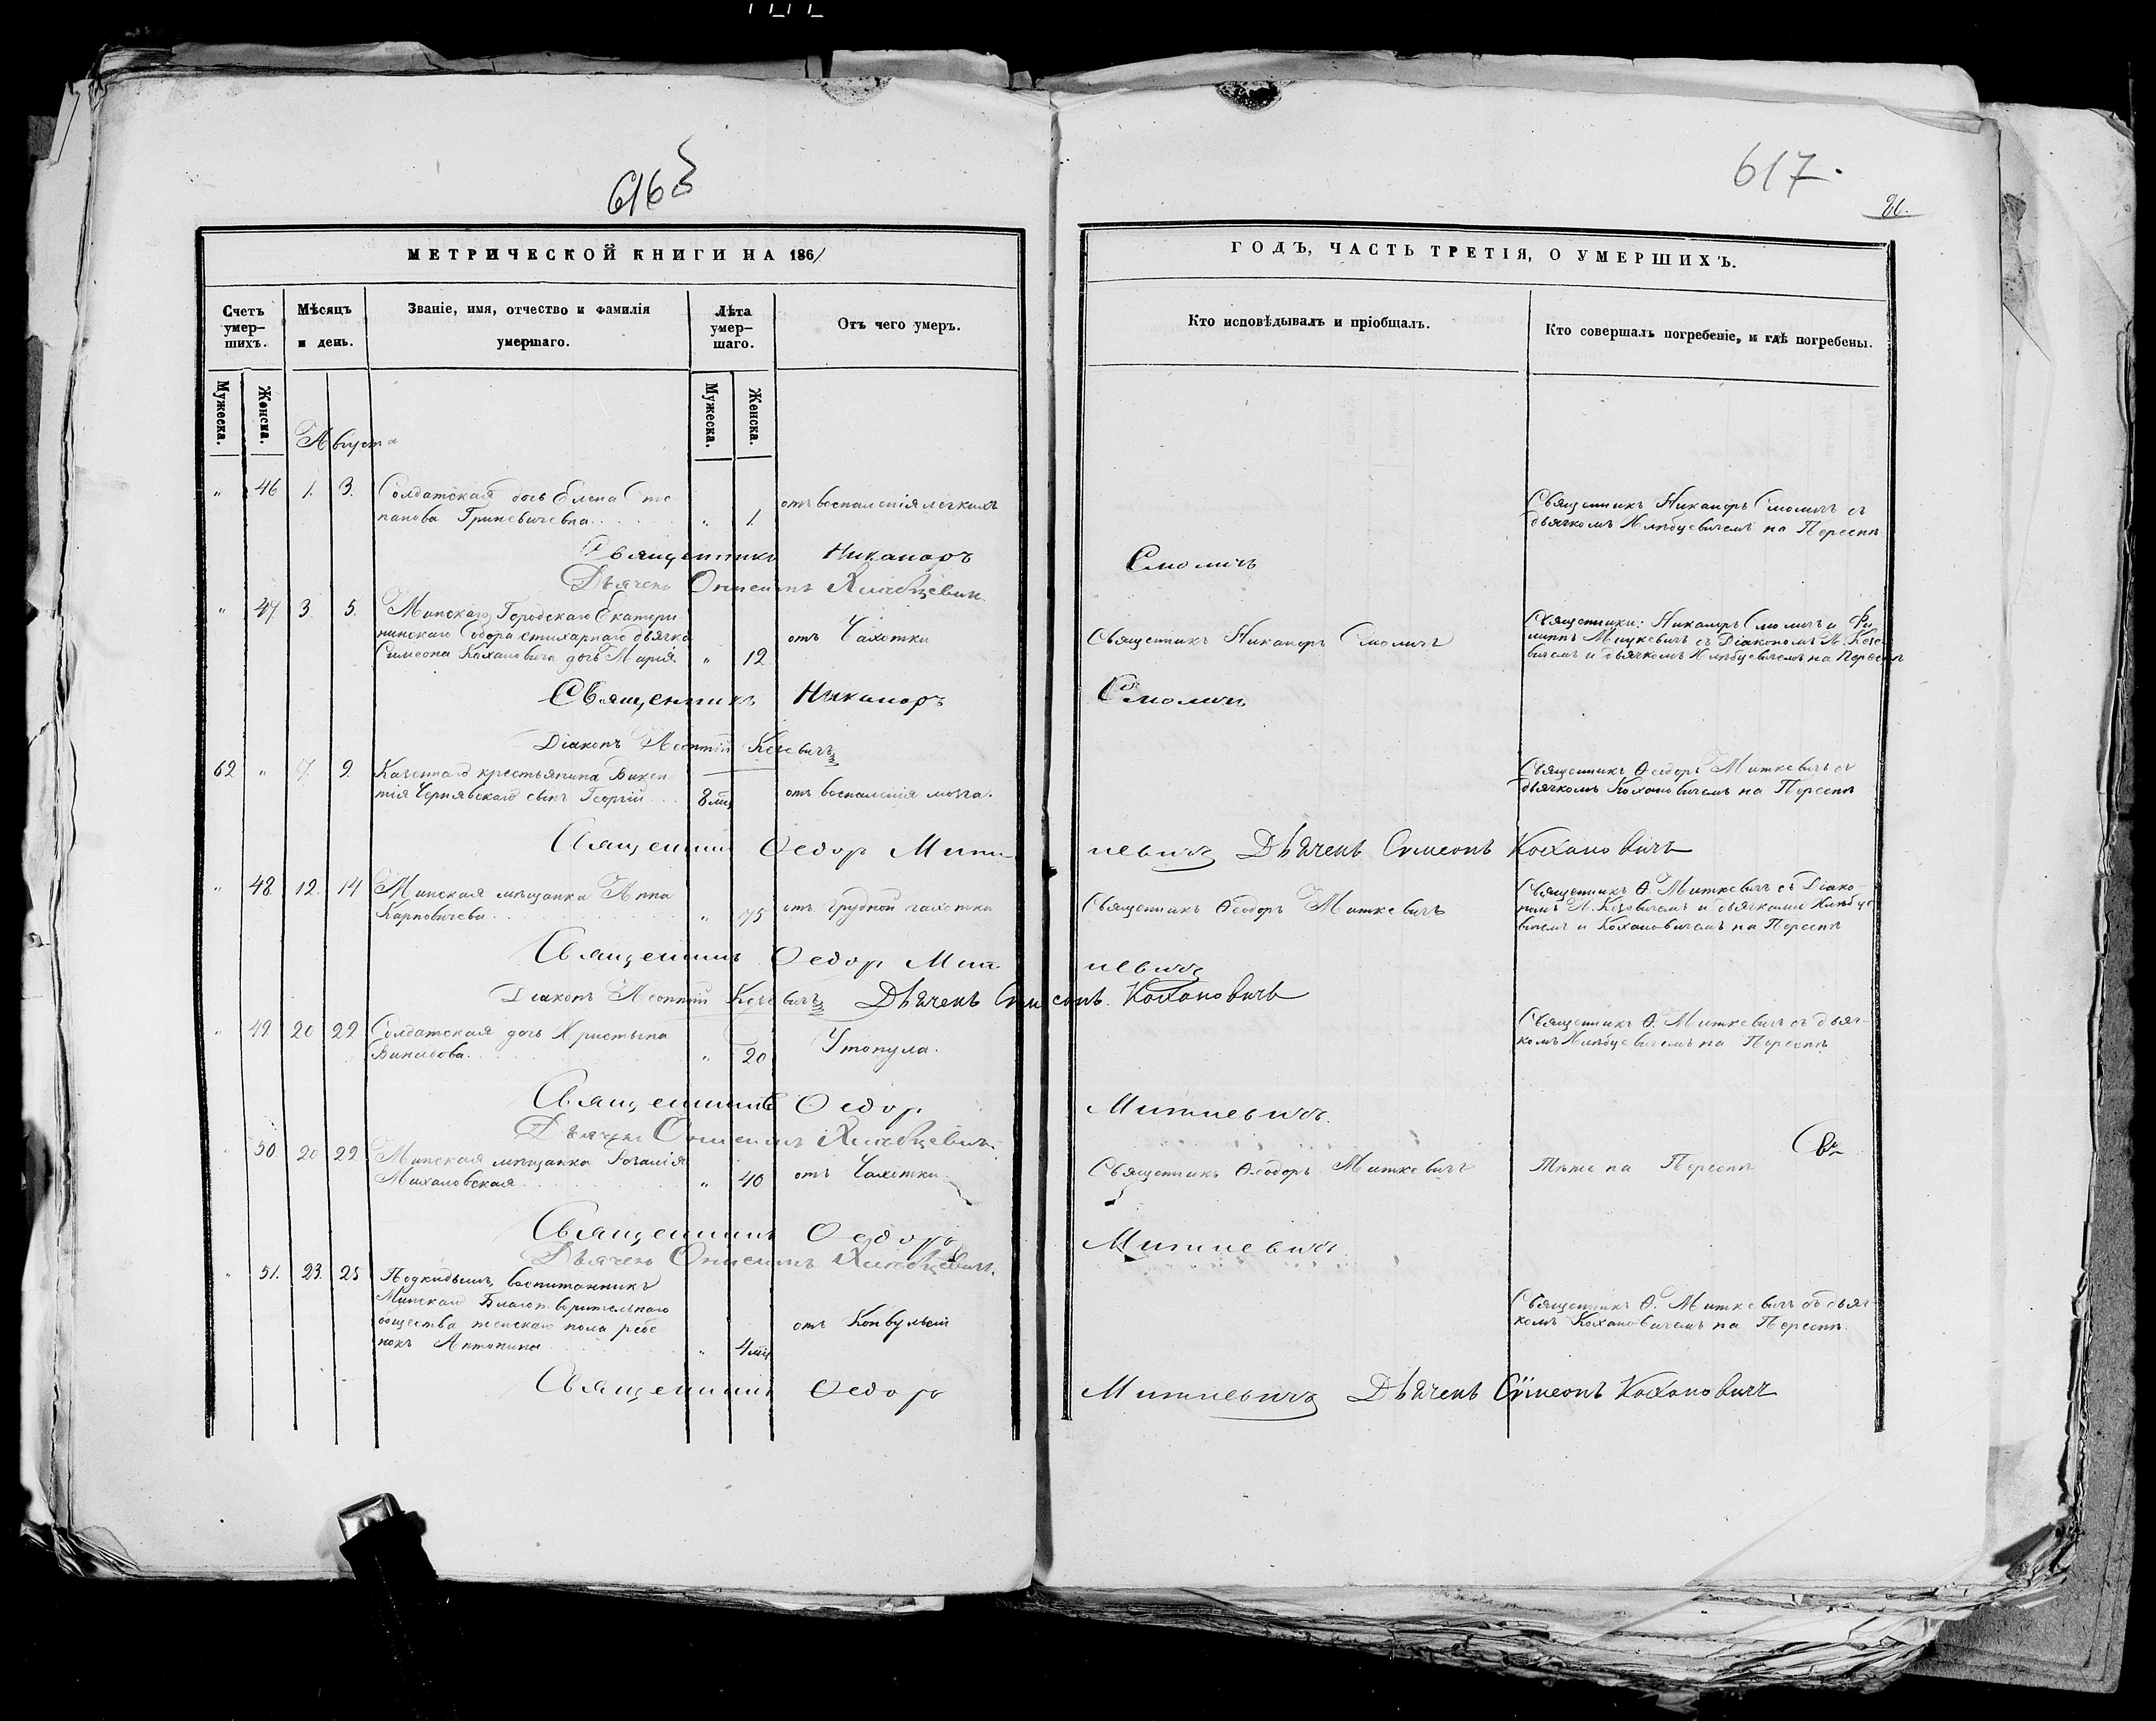 616
617.
МЕТРИЧЕСКОЙ КНИГИ НА 1861
ГОДЪ, ЧАСТЬ ТРЕТІЯ, О УМЕРШИХЪ.
Счетъ умер-шихъ.
Мѣсяцъ и день.
Званіе, имя, отчество и фамилія умершаго.
Лѣта умер-шаго.
Отъ чего умеръ.
Кто исповѣдывалъ и пріобщалъ.
Кто совершалъ погребеніе, и гдѣ погребены.
Мужеска. Женска. Мужеска. Женска.
Августа
" 46 1. 3. Солдатская дочь Елена Сте
панова Гриневичевна " 1.
отъ воспаленія легкихъ
Священникъ Никаноръ Смоличъ съ
дьячкомъ Хлѣбцевичемъ на Переспѣ
Священникъ Никаноръ Смоличъ
Дьячекъ Онисимъ Хлѣбцевичъ
" 47 3 5. Минскаго Городскаго Екатери
нинскаго Собора стихарнаго дьячка
Симеона Кохановича дочь Марія " 12
отъ Чахотки
Священникъ Никаноръ Смоличъ
Священники: Никаноръ Смоличъ и Фи
липпъ Мицкевичъ съ Діакономъ Л. Кеце
вичемъ и дьячкомъ Хлѣбцевичемъ на Переспѣ
Священникъ Никаноръ Смоличъ
Діаконъ Леонтій Кецевичъ
62 " 7. 9. Казеннаго крестьянина Викен
тія Чернявскаго сынъ Георгій 8 мц
отъ воспаленія мозга.
Священникъ Ѳеодоръ Миткевичъ съ
дьячкомъ Кохановичемъ на Переспѣ
Священникъ Ѳедор Миткевичъ Дьячекъ Симеонъ Кохановичъ
" 48 12. 14 Минская мѣщанка Анна
Карповичева " 75
отъ грудной чахотки
Священникъ Ѳеодоръ Миткевичъ
Священникъ Ѳ. Миткевичъ съ Діако-
номъ Л. Кецевичемъ и дьячками Хлѣбце
вичемъ и Кохановичемъ на Переспѣ
Священникъ Ѳедор Миткевичъ
Діаконъ Леонтій Кецевичъ Дьячекъ Симеонъ Кохановичъ
" 49 20 22 Солдатская дочь Христина
" 20
Утонула.
Священникъ Ѳ. Миткевичъ съ дьяч-
комъ Хлѣбцевичемъ на Переспѣ
Священникъ Ѳедор Миткевичъ.
Дьячекъ Онисимъ Хлѣбцевичъ
50 20 22 Минская мѣщанка
Михаловская " 40
отъ Чахотки
Священникъ Ѳеодоръ Миткевичъ
Тѣже на Переспѣ
Священникъ Ѳедоръ Миткевичъ
Дьячекъ Онисимъ Хлѣбцевичъ.
" 51. 23. 25 Подкидышъ, воспитанникъ
Минскаго Благотворительнаго
общества женскаго пола ребе
нокъ Антонина " 4 мц
отъ Конвульсій
Священникъ Ѳ. Миткевичъ съ дьяч-
комъ Кохановичемъ на Переспѣ.
Священникъ Ѳедоръ Миткевичъ Дьячекъ Сѵмеонъ Кохановичъ